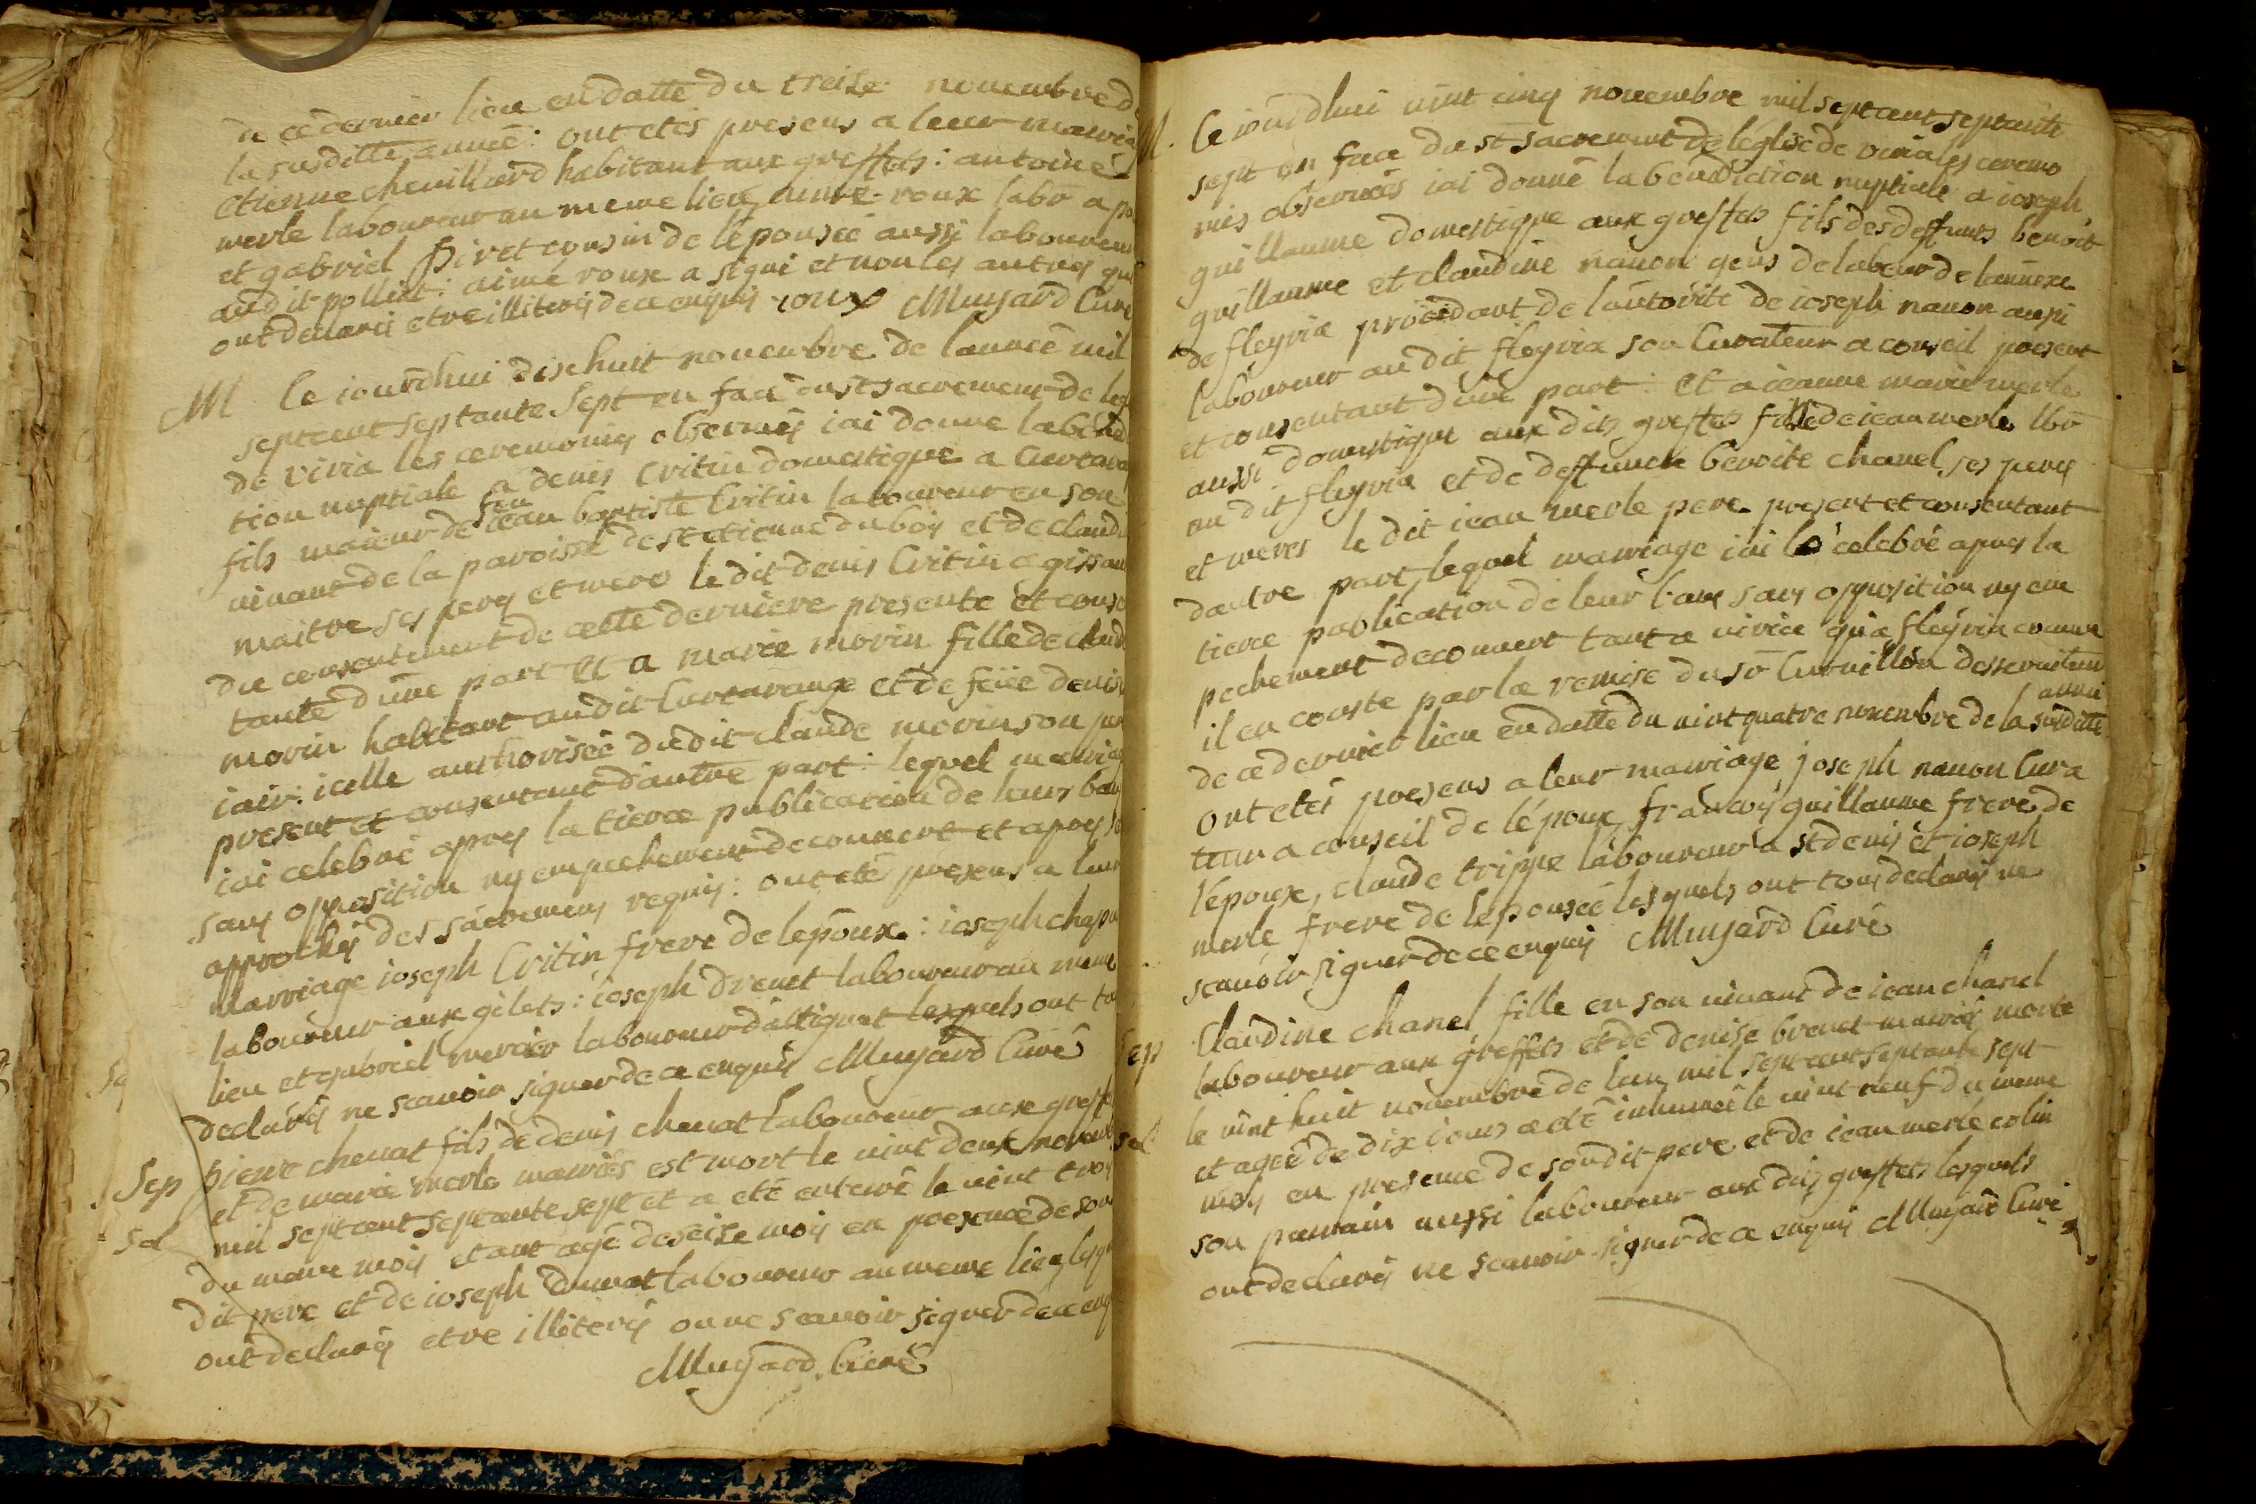 de ce dernier lieu en datte du treise novembre de
la susditte année : ont etés presens a leur mariage
etienne chevilliard habitant aux greffets : antoine
merle laboureur au meme lieu, aimé roux labr a po
et gabriel piret cousin de l'épousée aussi laboureur
audit polliat : aimé roux a signé et non les autres qui
ont declarés etre illiterés de ce enquis roux Muyard Curé
M Ce iourdhui dixhuit novembre de l'année mil
septcent septante sept en face du st sacrement de leg
de viria les ceremonies observées iai donné la bénédic
tion nuptiale a denis Critin domestique a Curtara
fils maieur de feu iean baptiste Critin laboureur en son
vivant de la paroisse de st etienne du bois et de claud
maitre ses peres et meres le dit denis Critin agissant
du consentement de cette derniere presente et conse
tante d'une part et a marie morin fille de claude
morin habitant audit Curtarange et de feüe denise
iair : icelle authorisée dudit claude morin son pere
present et consentant d'autre part : lequel mariage
iai celebré apres la tierce publication de leurs bans
sans opposition ny empechement decouvert et apres s
approchés des sacremens requis : ont eté presens a leur
Marriage ioseph Critin frere de lepoux : ioseph chapu
laboureur aux gilets : ioseph drevet laboureur au meme
lieu et gabriel mercier laboureur d'attignat lesquels ont to
declarés ne scavoir signer de ce enquis Muyard Curé
Sep pierre chenat fils de denis chenat laboureur aux greffe
et de marie merle mariés est mort le vint deux novemb
Sol mil septcent septante sept et a eté enterré le vint trois
du meme mois etant agé de seise mois en presence de son
dit pere et de ioseph laboureur au meme lieu lesqu
ont declarés etre illiterés ou ne scavoir signer de ce enq
Muyard Curé
M. Ce iourdhui vint cinq novembre mil septcent septante
sept en face du st sacrement de léglise de viria les ceremo
nies observées iai donné la bénédiction nuptiale a ioseph
guillaume domestique aux greffets fils des deffunts benoit
guillaume et claudine nanon gens de labeur de lannexe
de fleyria procedant de l'autorité de ioseph nanon aussi
laboureur au dit fleyria son Curateur a conseil present
et consentant d'une part : Et a ieanne marie merle
aussi domestique aux dits greffets fille de iean merle lbr
au dit fleyria et de deffuncte benoite chanel ses peres
et meres le dit iean merle pere present et consentant
dautre part, lequel marriage iai celebré apres la
tierce publication de leur bans sans opposition ny em
pechement decouvert tant a viria qu'a fleyria comme
il en conste par la remise du sr Curvillon desserviteur
de ce dernier lieu en datte du vint quatre novembre de la susditte
année
ont etés presens a leur mariage joseph nanon Cura
teur a conseil de lépoux, francois guillaume frere de
l'époux, claude trippe laboureur a st denis et ioseph
merle frere de lepousée lesquels ont tous declarés ne
scavoir signer de ce enquis Muyard Curé
Sep Claudine chanel fille en son vivant de iean chanel
laboureur aux greffets et de denise brevet mariés morte
le vint huit novembre de l'an mil septcent septante sept
Sol et agée de dix iours a eté inhumée le vint neuf du meme
mois en presence de son dit pere et de iean merle colin
son parrain aussi laboureur aux dits greffets lesquels
ont declarés ne scavoir signer de ce enquis Muyard Curé